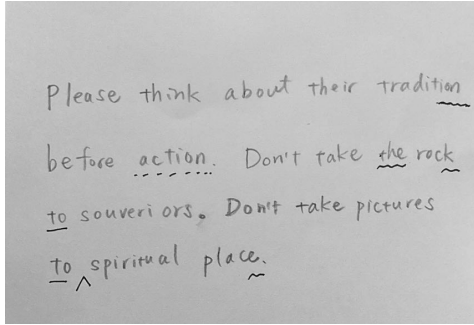 Please think about their tradition
before action. Don't take the rock
to souveriors. Don't take pictures
to spiritual place.